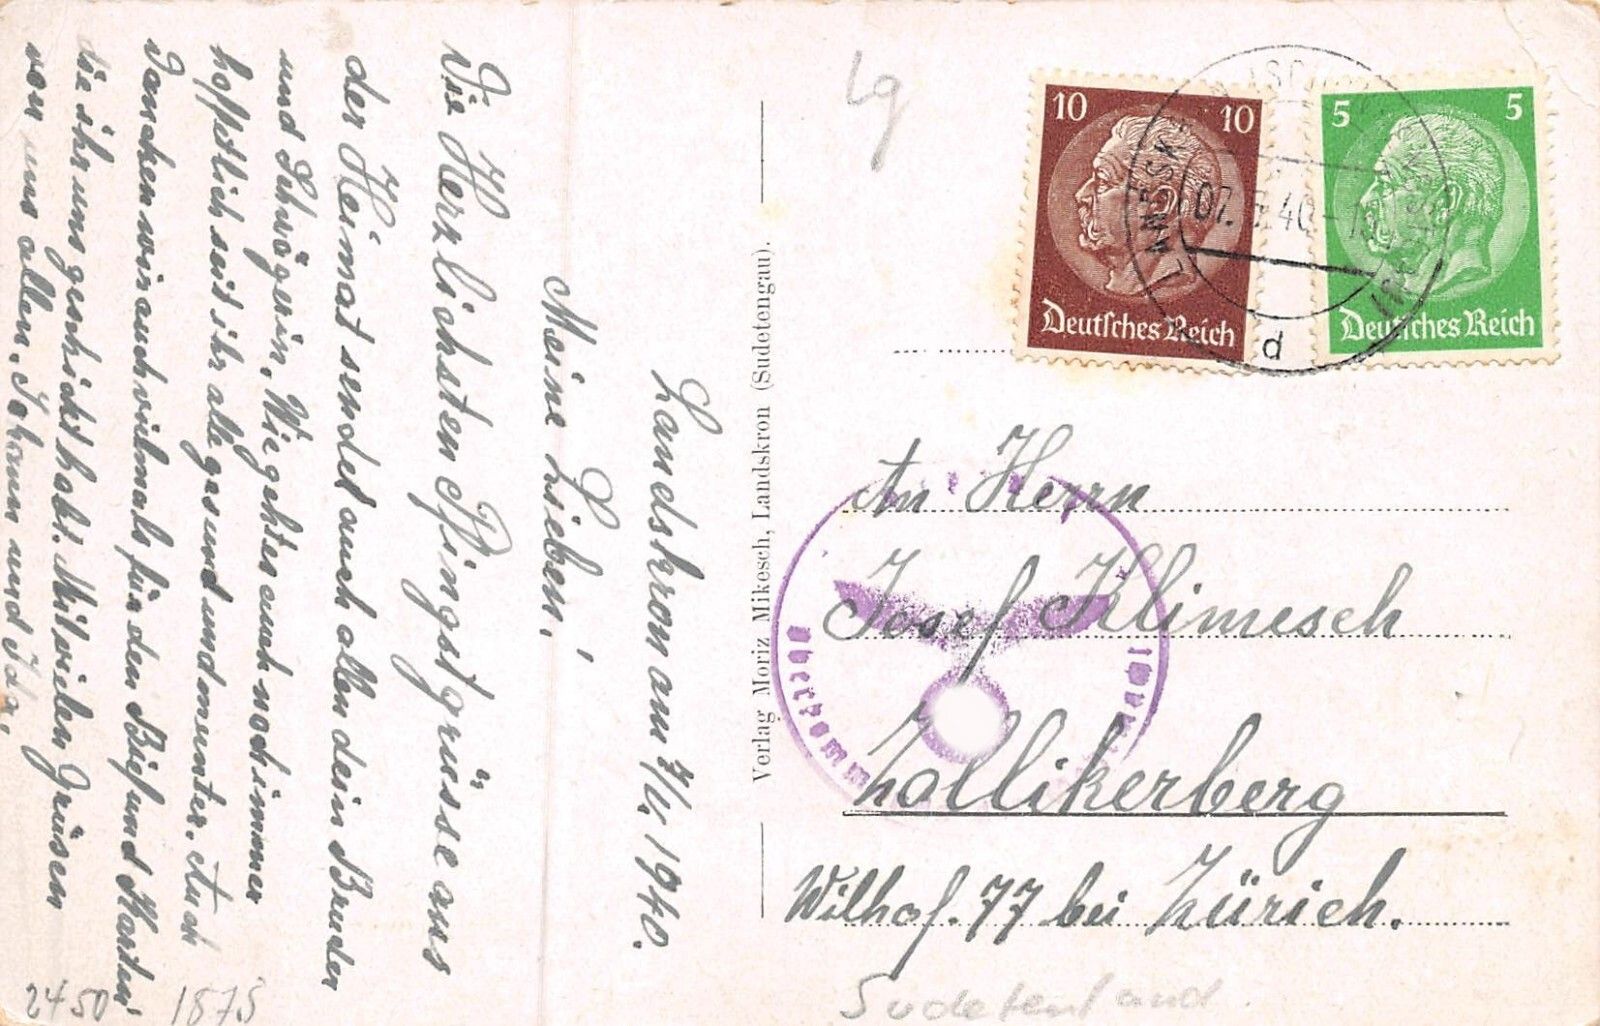 Landskron am 7/V 1940.
Meine Lieben!
Die Herzlichsten Pfingstgrüsse aus
der Heimat sendet auch allen dein Bruder
und Schwägerin. Wie geht es euch noch immer
hoffetlich seit ihr alle gesund und munter. Auch
Dancken wir auch vilmals für den Bief und Karten
die ihr uns geschickt habt. Mit vielen Grüsen
von uns allen. Johann und Ida.
2450 1875
Verlag Moriz Mikesch, Landskron (Sudetengau).
Lg
10 10
Deutsches Reich
5 5
Deutsches Reich
LANDSK
07. 40-19
d
An Herrn
Josef Klimesch
Zollikerberg
Wilhof. 77 bei Zürich.
Oberkomm
Sudetenland